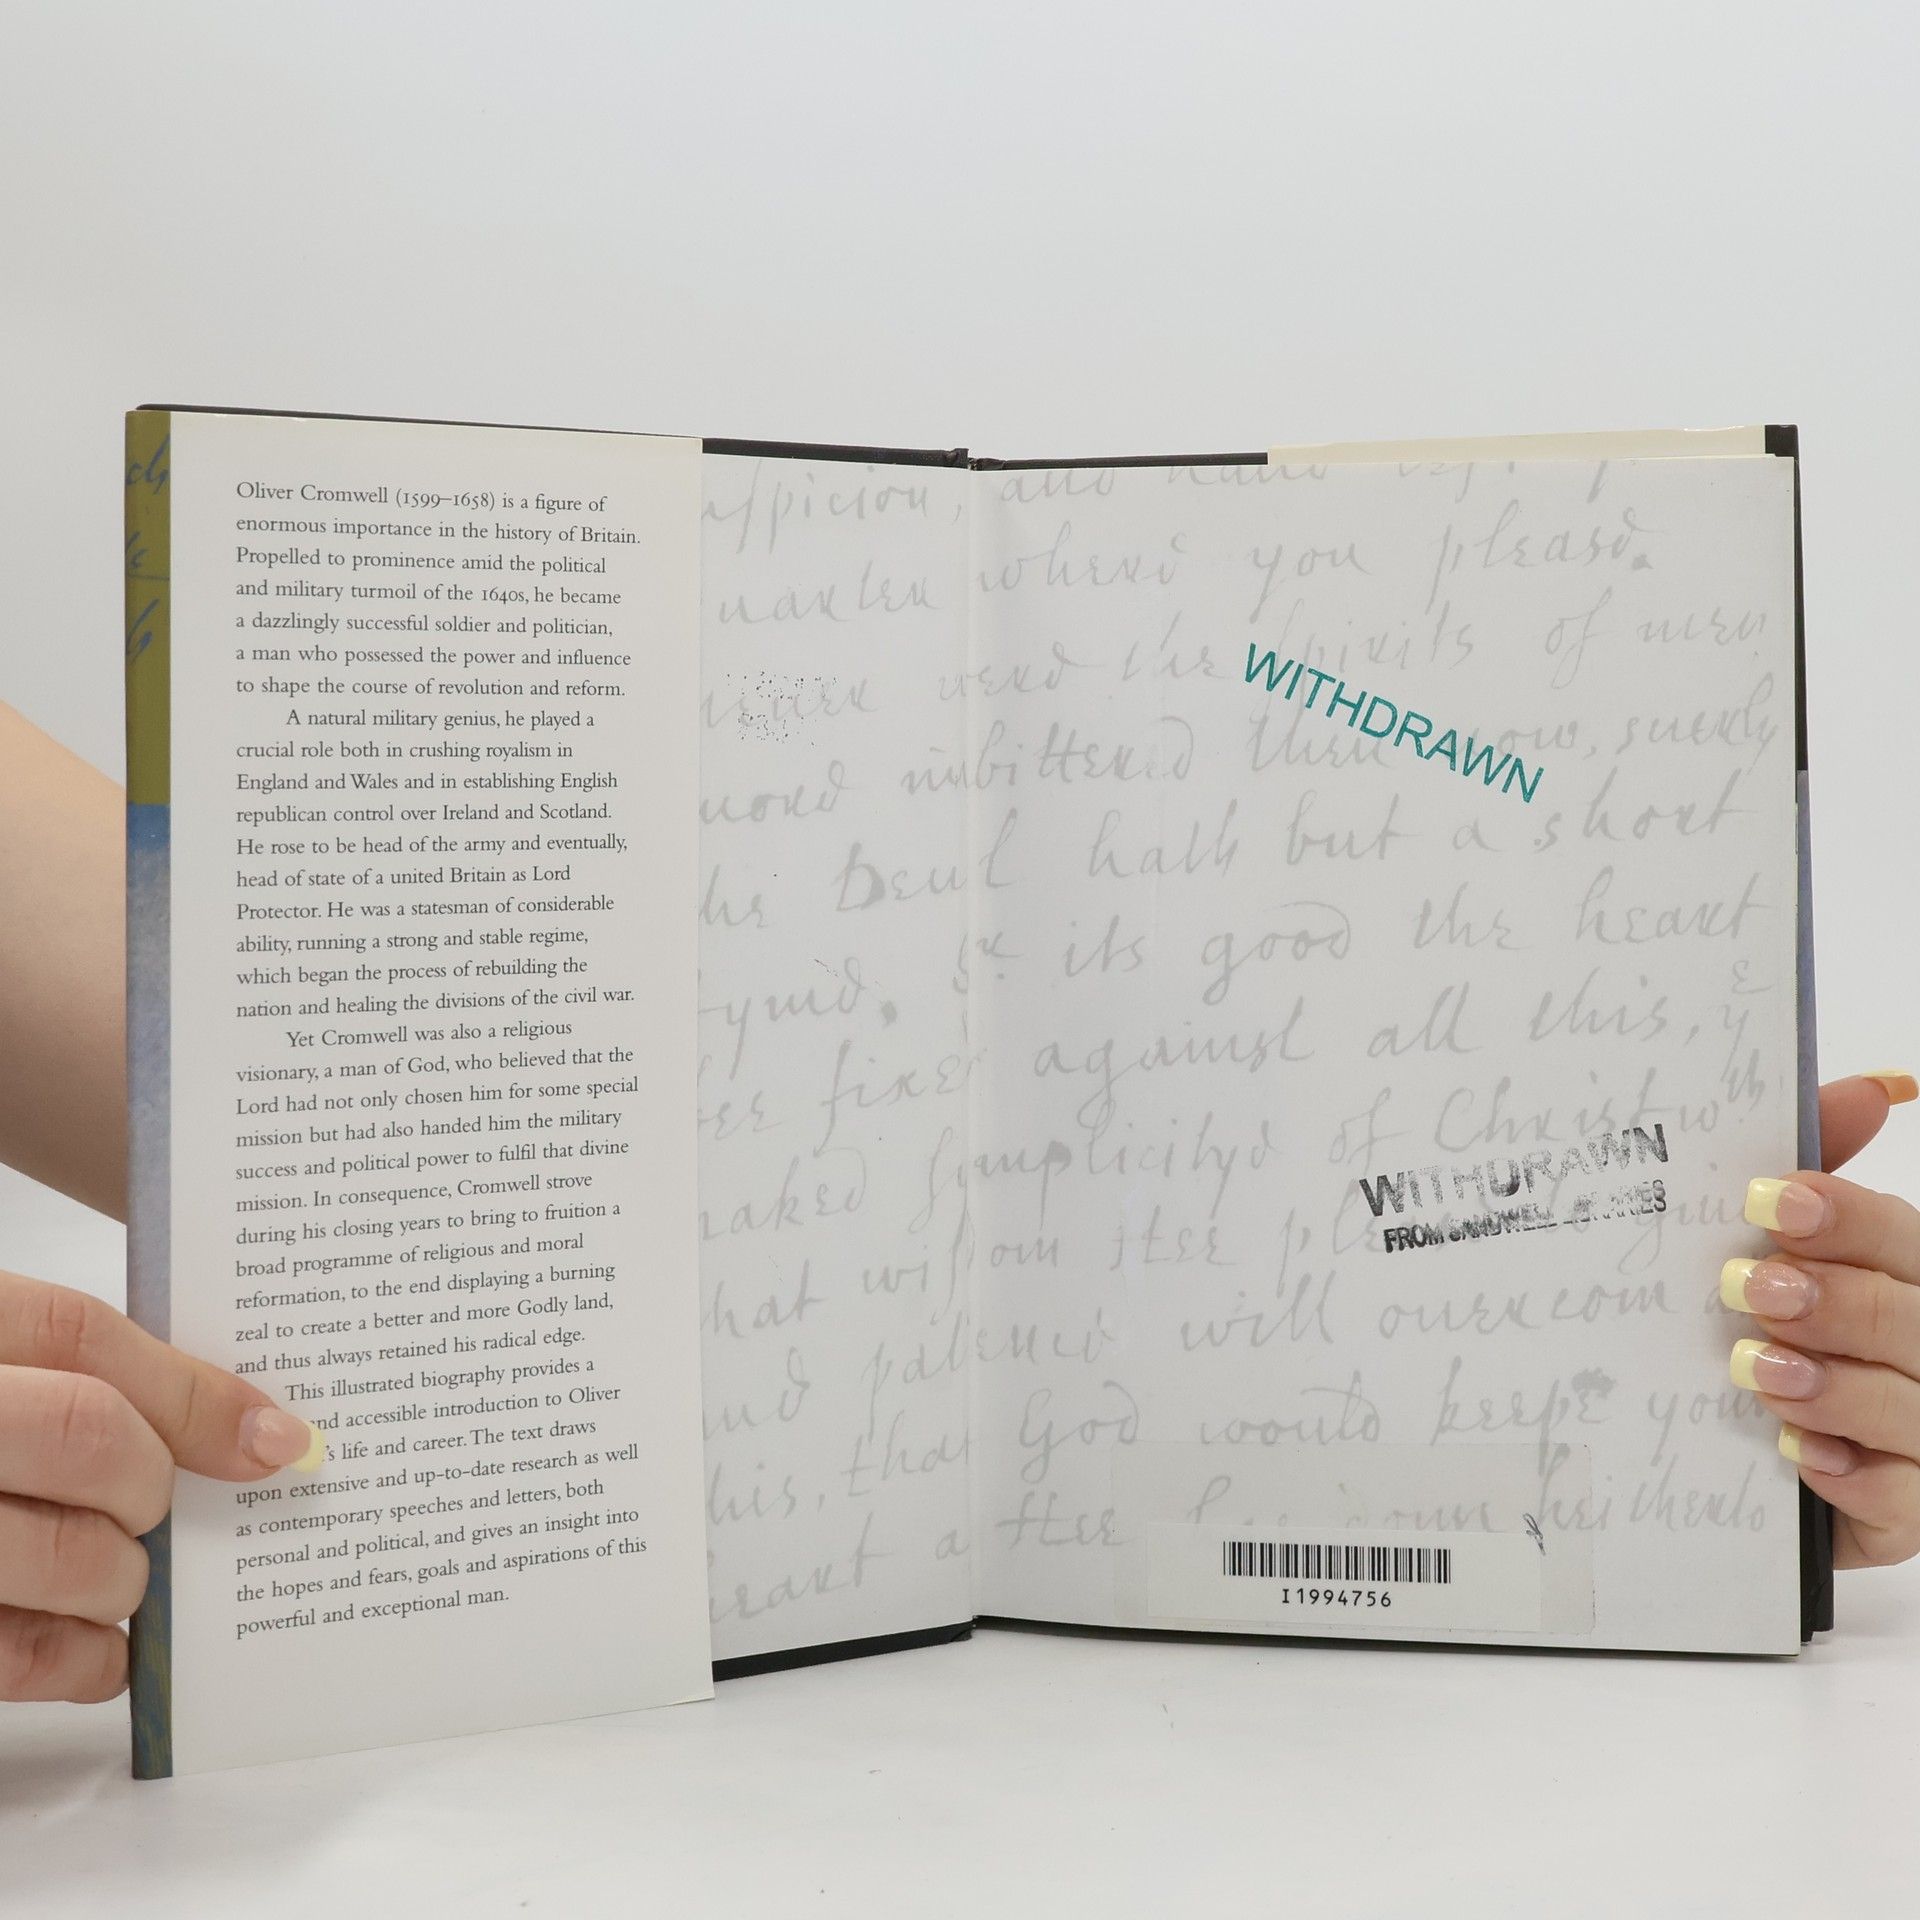 Oliver Cromwell (1599–1658) is a figure of
enormous importance in the history of Britain.
Propelled to prominence amid the political
and military turmoil of the 1640s, he became
a dazzlingly successful soldier and politician,
a man who possessed the power and influence
to shape the course of revolution and reform.
A natural military genius, he played a
crucial role both in crushing royalism in
England and Wales and in establishing English
republican control over Ireland and Scotland.
He rose to be head of the army and eventually,
head of state of a united Britain as Lord
Protector. He was a statesman of considerable
ability, running a strong and stable regime,
which began the process of rebuilding the
nation and healing the divisions of the civil war.
Yet Cromwell was also a religious
visionary, a man of God, who believed that the
Lord had not only chosen him for some special
mission but had also handed him the military
success and political power to fulfil that divine
mission. In consequence, Cromwell strove
during his closing years to bring to fruition a
broad programme of religious and moral
reformation, to the end displaying a burning
zeal to create a better and more Godly land,
and thus always retained his radical edge.
This illustrated biography provides a
and accessible introduction to Oliver
's life and career. The text draws
upon extensive and up-to-date research as well
as contemporary speeches and letters, both
personal and political, and gives an insight into
the hopes and fears, goals and aspirations of this
powerful and exceptional man.
you pleasd.
the spirits of men
hath but a short
its good the heart
against all this,
of Christ
will ouercom
God would keepe your
WITHDRAWN
WITHDRAWN
FROM SANDWELL LIBRARIES
I1994756